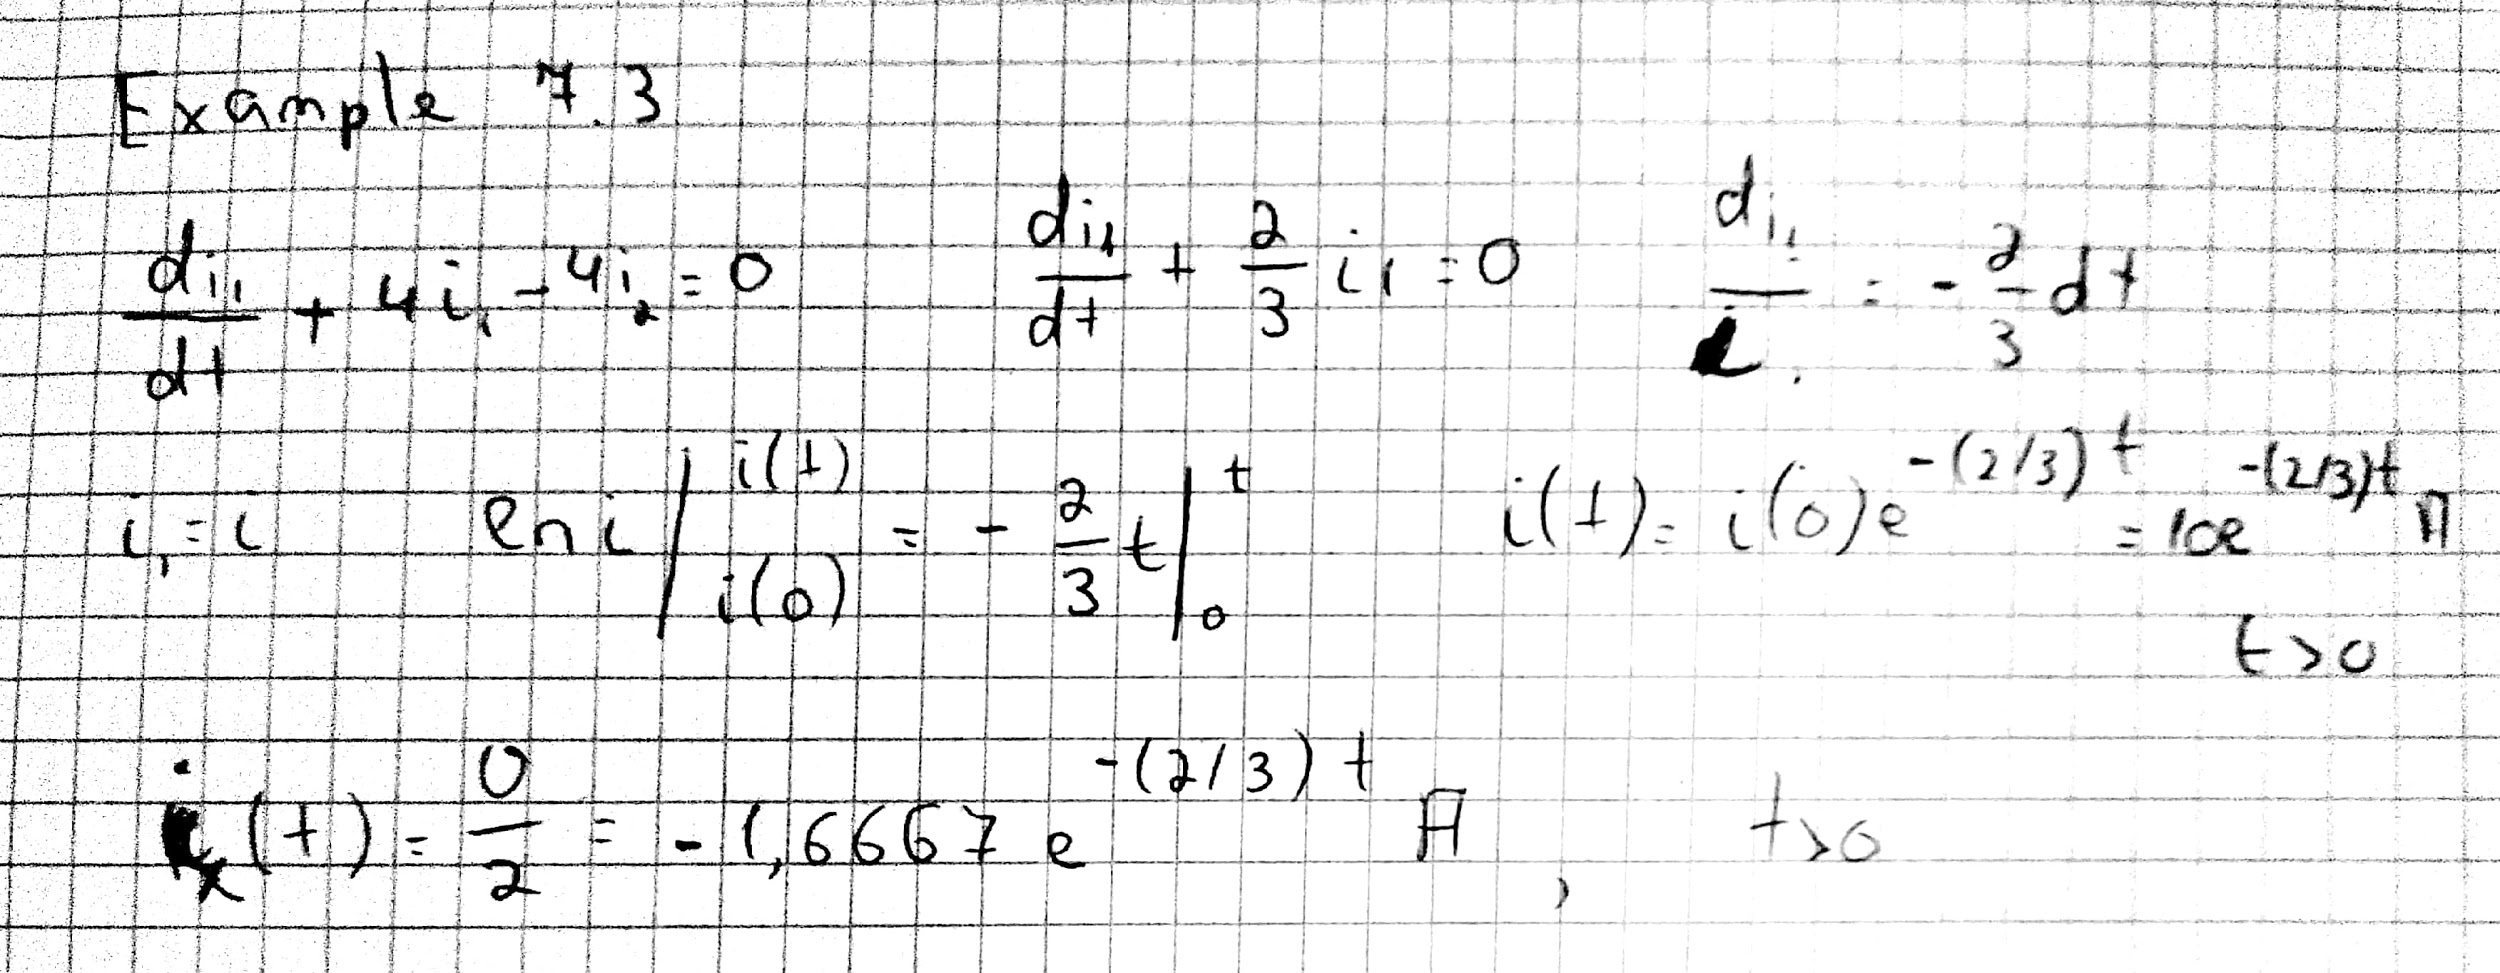 Example 7.3
di₁/dt + 4i₁ - 4i₂ = 0 di₁/dt + 2/3 i₁ = 0 di₁/i₁ = - 2/3 dt
i₁ = i ln i |_{i(0)}^{i(t)} = - 2/3 t |_0^t i(t) = i(0)e^{-(2/3)t} = 10e^{-(2/3)t} A
t>0
iₓ(t) = 0/2 = -1,6667 e^{-(2/3)t} A, t>0